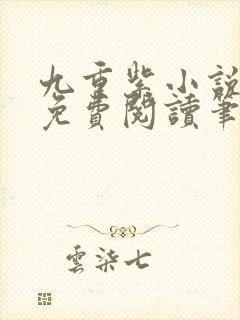 九重紫小說
免費閱讀筆
雲柒七